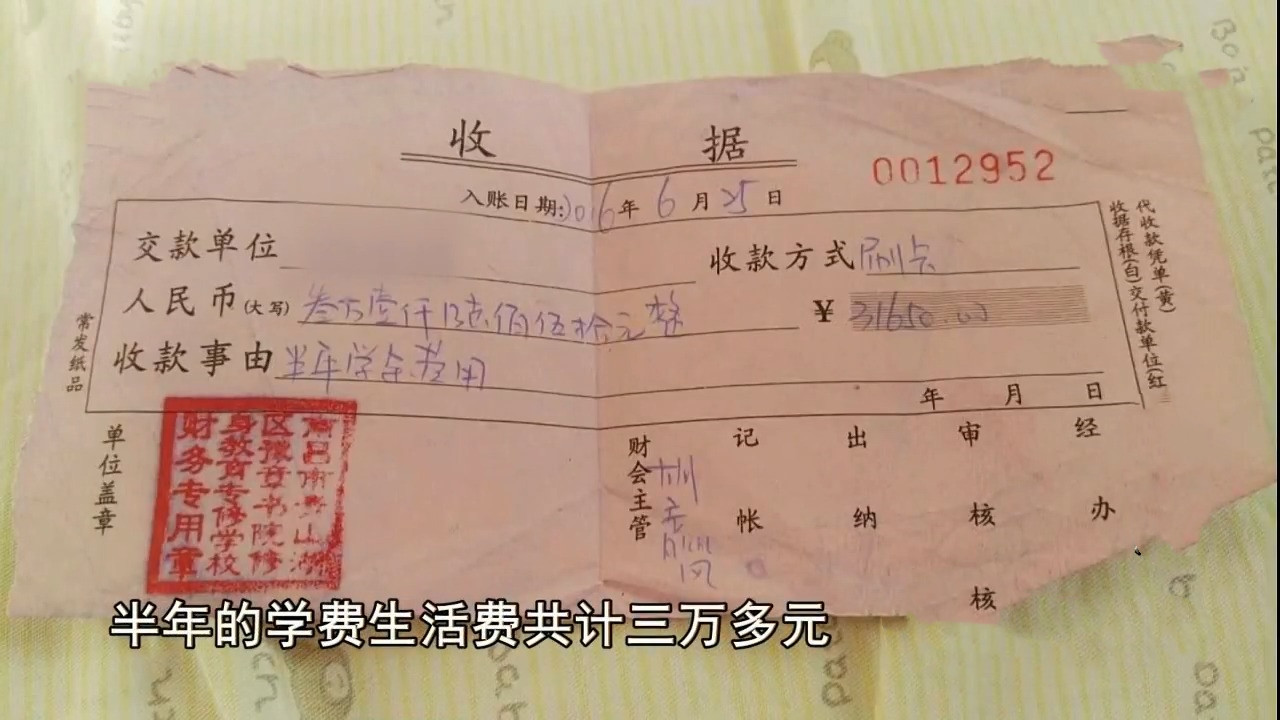 收 据
0012952
入账日期:2016年6月25日
交款单位
收款方式 刷卡
人民币(大写) 叁万壹仟陆佰伍拾元整
¥ 31650.00
收款事由 半年学杂费用
年 月 日
常发纸品
代收款凭单(黄)
收据存根(白)交付款单位(红
单位盖章
南昌青山湖
区豫章书院修
身教育专修学校
财务专用章
财会主管
记帐
出纳
审核
核
经办
半年的学费生活费共计三万多元